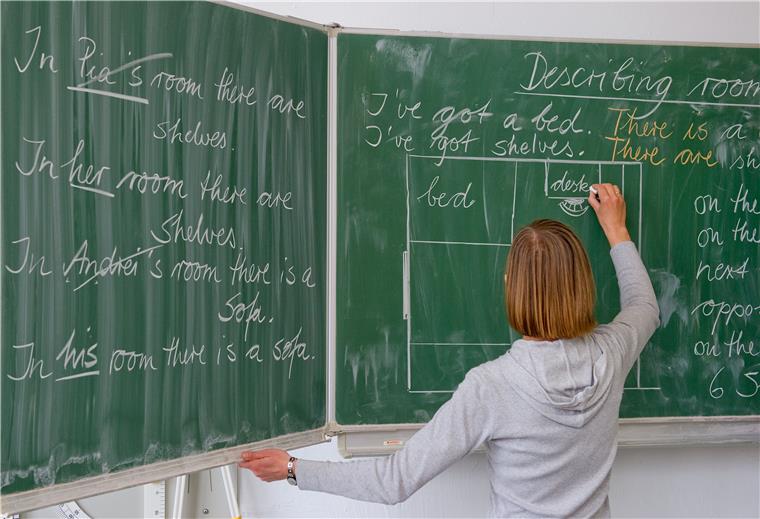 In Pia's room there are
shelves.
In her room there are
shelves.
In Andrei's room there is a
Sofa.
In his room there is a sofa.
Describing room
I've got a bed. There is a
I've got shelves. There are sh
bed
desk
on the
on the
next
oppo
on the
6 5